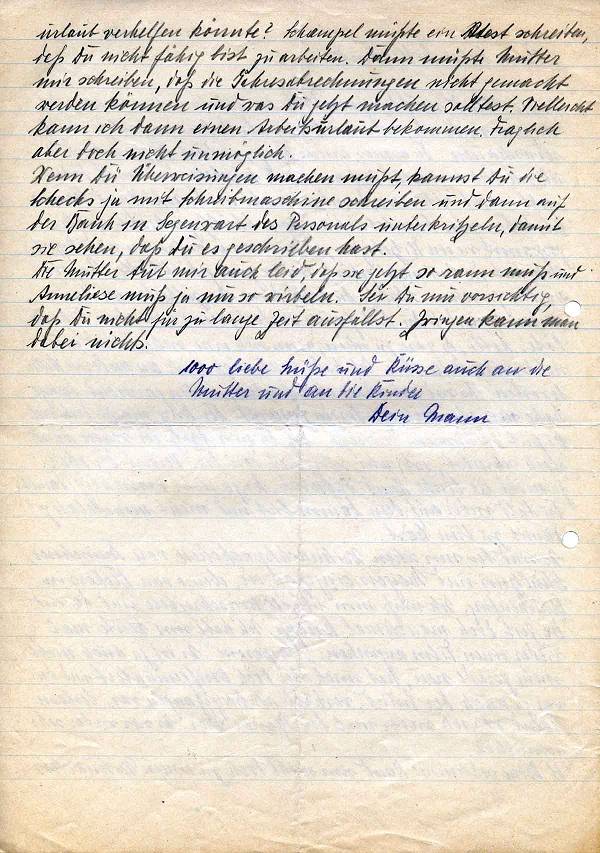 urlaub verhelfen könnte? Schaempel müßte ein Attest schreiben,
daß Du nicht fähig bist zu arbeiten. Dann müßte Mutter
mir schreiben, daß die Jahresabrechnungen nicht gemacht
werden können und was Du jetzt machen solltest. Vielleicht
kann ich dann einen Arbeitsurlaub bekommen. Fraglich
aber doch nicht unmöglich.
Wenn Du Überweisungen machen mußt, kannst Du die
Schecks ja mit Schreibmaschine schreiben und dann auf
der Bank in Gegenwart des Personals unterkritzeln, damit
sie sehen, daß Du es geschrieben hast.
Die Mutter tut mir auch leid, daß sie jetzt so ran muß und
Anneliese muß ja nur so wirbeln. Sei Du nur vorsichtig
daß Du nicht für zu lange Zeit ausfällst. Zwingen kann man
dabei nichts.
1000 liebe Grüße und Küsse auch an die
Mutter und an die Kinder
Dein Mann